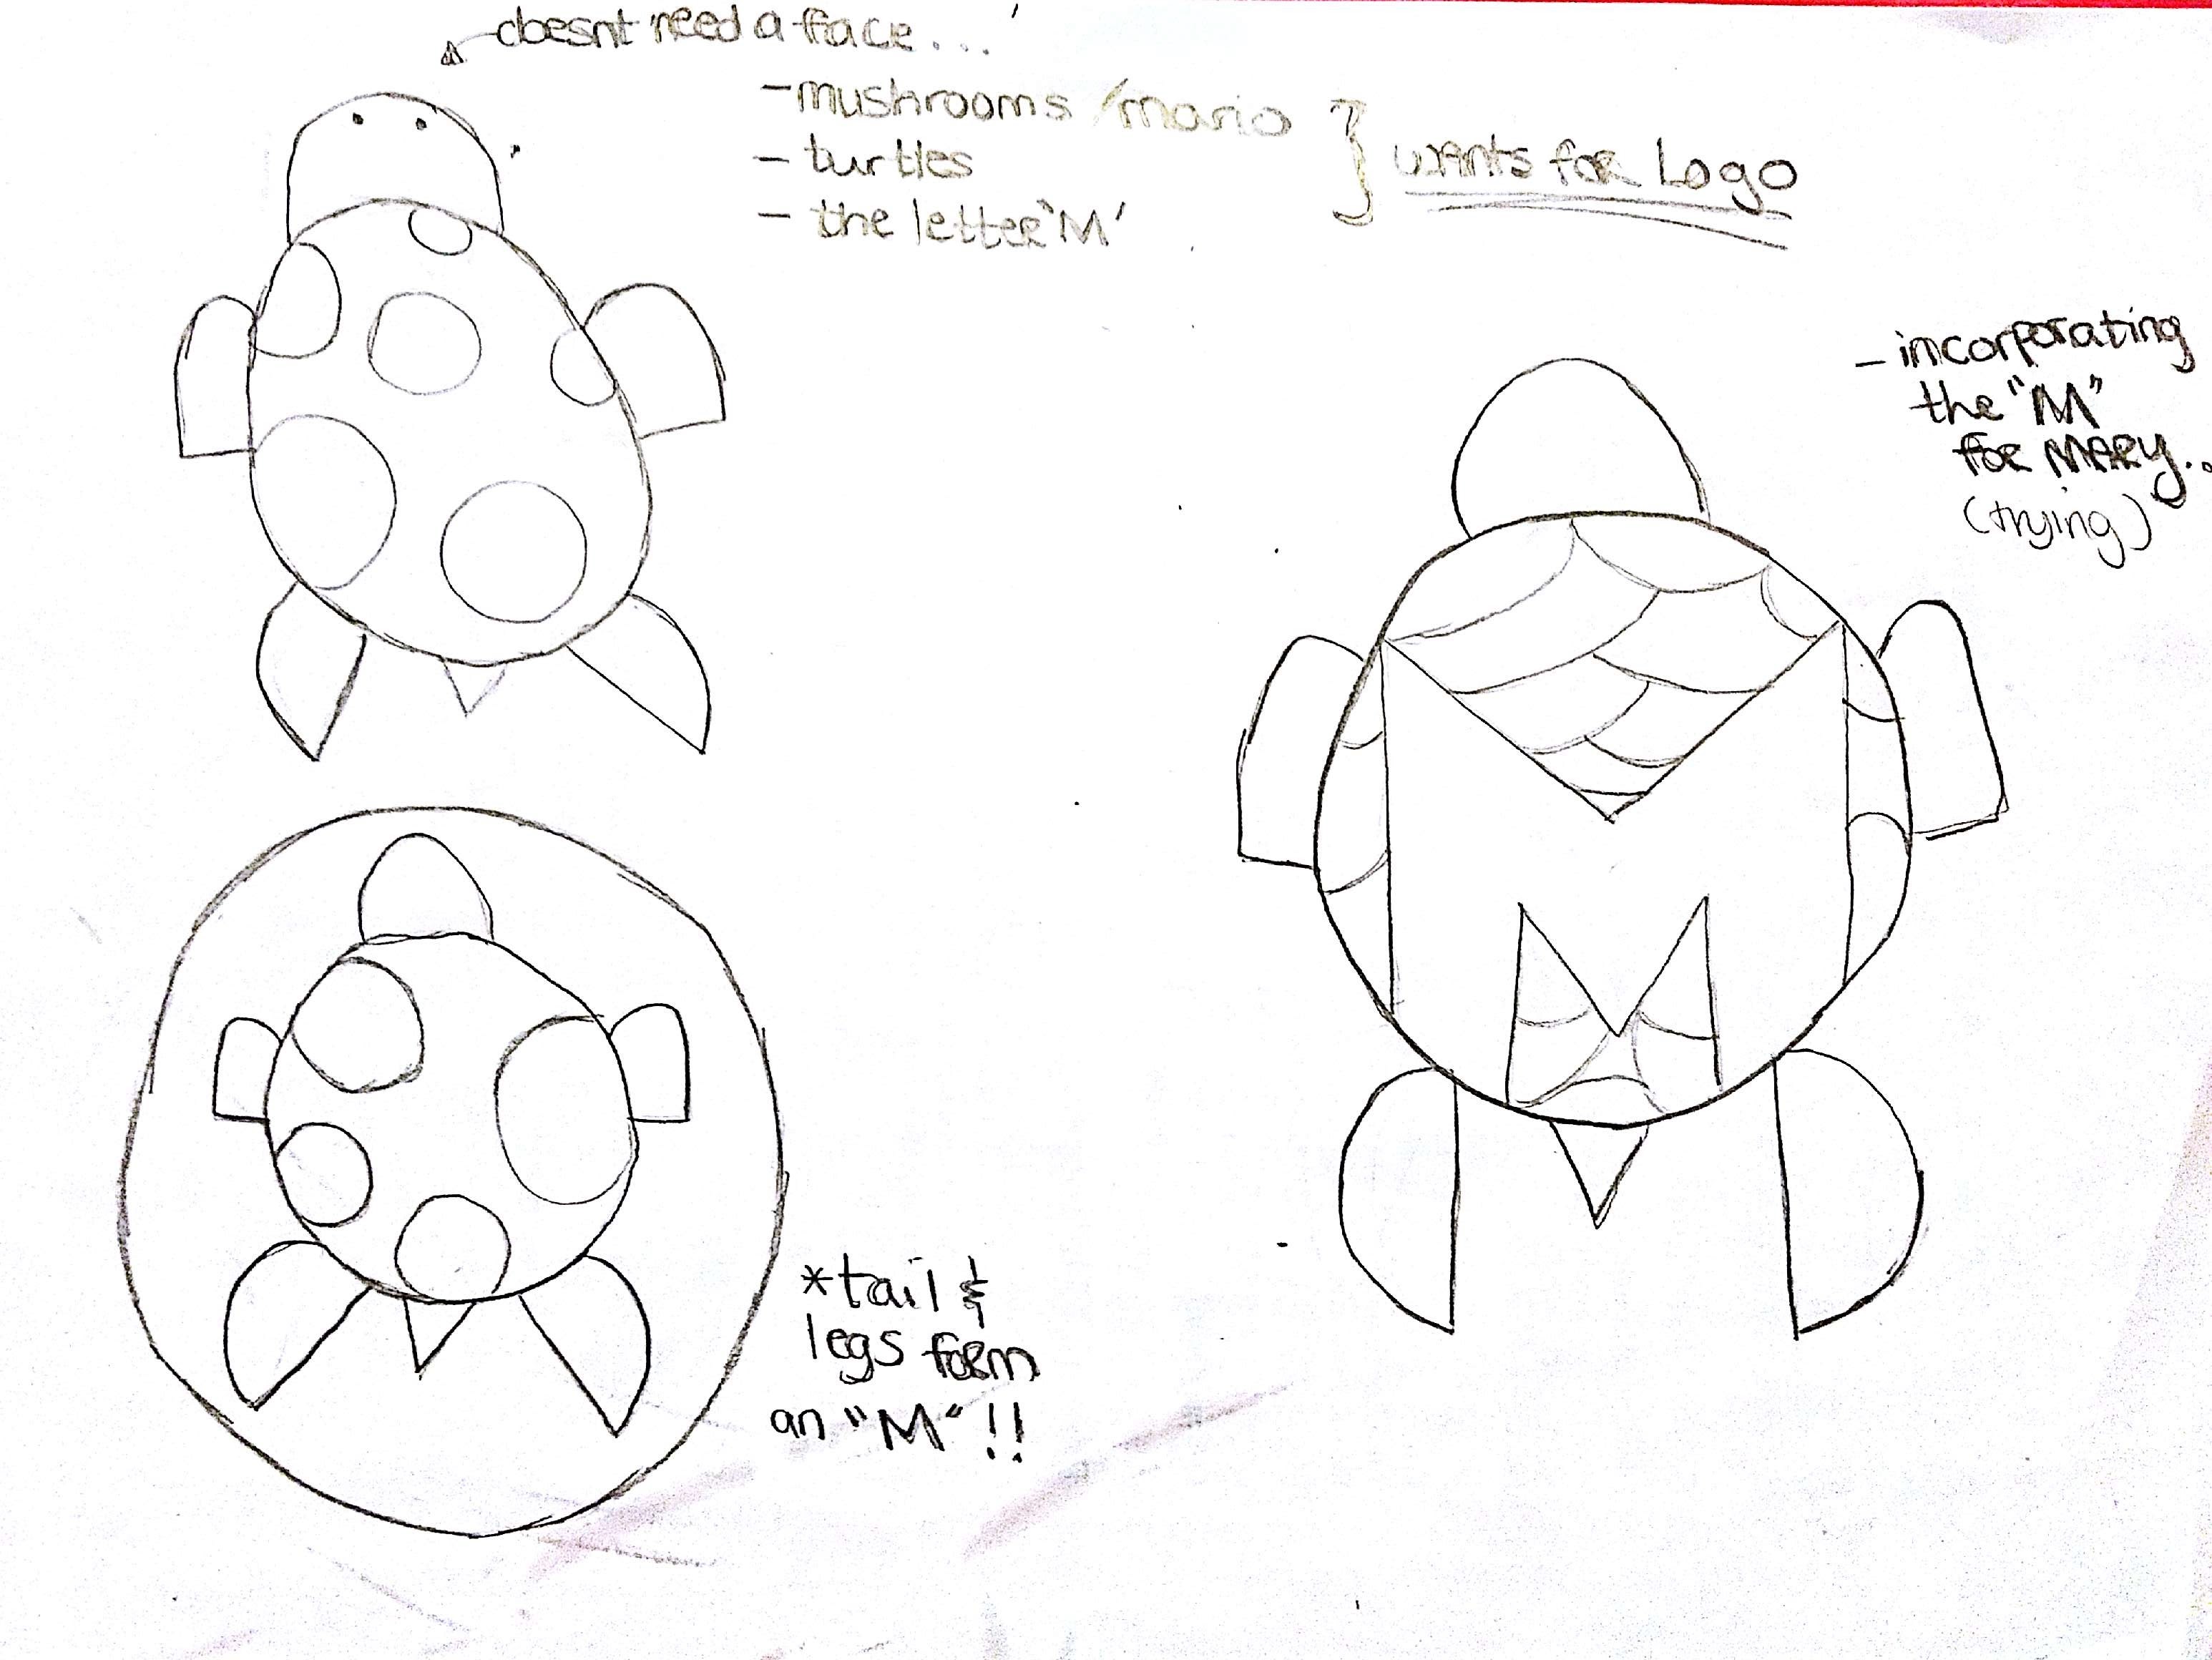 doesnt need a face...
- mushrooms / mario
- turtles
- the letter "M'
} wants for Logo
- incorporating
the "M"
for MARY..
(trying)
*tail &
legs form
an "M" !!